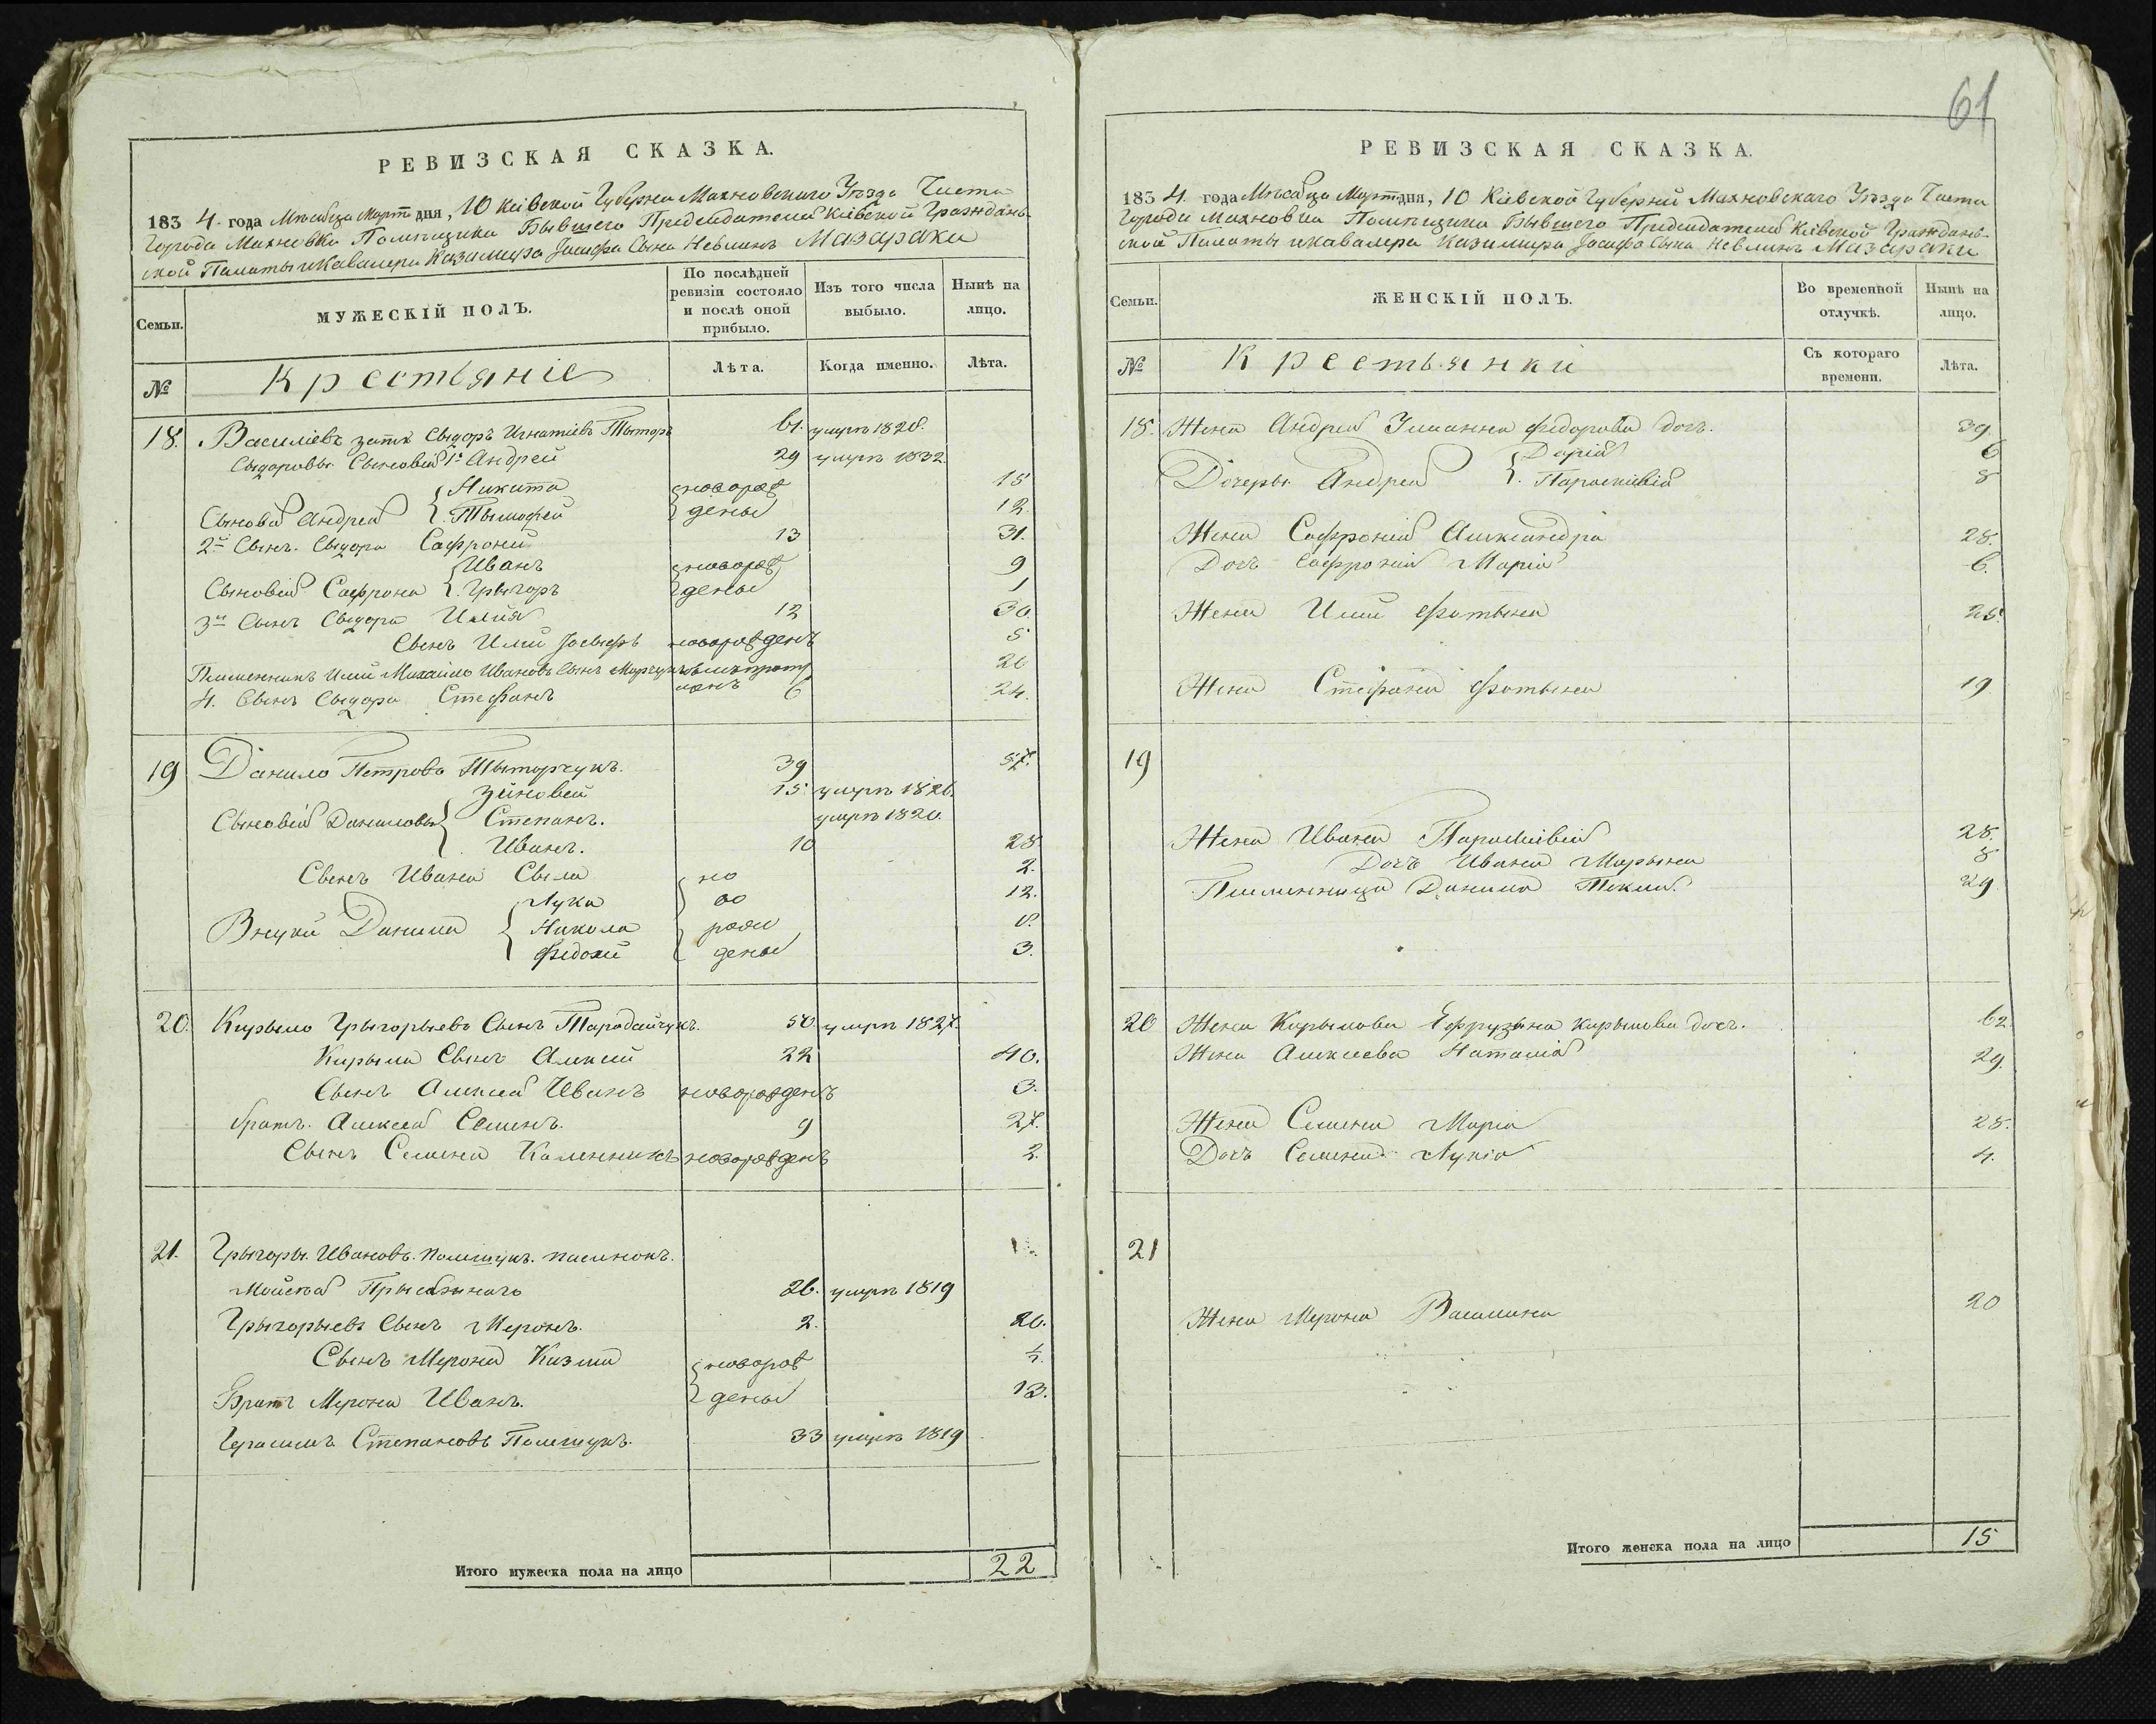 РЕВИЗСКАЯ СКАЗКА.
1834. года Мѣсяца Март дня, 10 Кіевской Губерни Махновскаго Уѣзда Части
Города Махновки Помѣщика Бывшего Председателя Кіевской Граждань-
ской Палаты и Кавалера Казимира Іосифа Сына Невлинъ Мазараки
Семьи.
МУЖЕСКІЙ ПОЛЪ.
По послѣдней ревизіи состояло и послѣ оной прибыло.
Изъ того числа выбыло.
Нынѣ на лицо.
№
Крестьяніе
Лѣта.
Когда именно.
Лѣта.
18. Василіевъ зять Сыдоръ Игнатіевъ Тытора 61. умеръ 1828.
Сыдоровы Сыновія 1й Андрей 29 умеръ 1832.
Никита новорож 15
Сыновія Андрея Тымофей дены 12.
2й Сынъ Сыдора Сафроній 13 31.
Иванъ новорож 9
Сыновія Сафрона Грыгоръ дены 1
3й Сынъ Сыдора Илия 12 30.
Сынъ Илии Іосыфъ новорожденъ 5
Племенникъ Илии Михайло Ивановъ Сынъ 20
4. Сынъ Сыдора Стефанъ 6 24.
19 Данило Петрова Тыторчукъ. 39 57.
Зѣновей 15 умеръ 1826.
Сыновія Данилова Степанъ. умеръ 1820
Иванъ. 10 28.
Сынъ Ивана Сыла но 2.
Лука во 12.
Внуки Данила Никола рож 8.
Федосій дены 3.
20. Кирыло Грыгорьевъ Сынъ Тарадайчукъ. 50. умеръ 1827.
Кирыла Сынъ Алексій 22 40.
Сынъ Алексія Иванъ новорожденъ 3.
братъ Алексея Семенъ. 9 27.
Сынъ Семена Каленникъ новорожденъ 2.
21. Грыгоры Ивановъ Полищукъ пасинокъ.
Мойсѣя 26. умеръ 1819
Грыгорьевъ Сынъ Меронъ. 2. 20.
Сынъ Мерона Кузма новорож ½.
Братъ Мерона Иванъ. дены 13.
Герасимъ Степановъ Полищукъ. 33 умеръ 1819
Итого мужеска пола на лицо 22
61
РЕВИЗСКАЯ СКАЗКА.
1834. года Мѣсяца Март дня, 10 Кіевской Губерній Махновскаго Уѣзда Части
Города Махновки Помѣщика Бывшего Председателя Кіевской Граждань-
ской Палаты и Кавалера Казимира Іосифа Сына Невлинъ Мазараки
Семьи.
ЖЕНСКІЙ ПОЛЪ.
Во временной отлучкѣ.
Нынѣ на лицо.
№
Крестьянки
Съ котораго времени.
Лѣта.
18. Жена Андрея Улианна Федорова дочь. 39.
Дарія 6
Дочеры Андрея Параскивія 8
Жена Сафронія Александра 28.
Дочь Сафронія Марія 6.
Жена Илии Фотына 25.
Жена Стефана Фотына 19
19
Жена Ивана Параскивія 28.
Дочъ Ивана Марына 8
Племенница Данила Текля 29
20 Жена Кирылова Ефрузына Кирылова дочь. 62
Жена Алексеева Наталія 29.
Жена Семена Марія 25.
Дочъ Семена Лукія 4.
21
Жена Мерона Василина 20
Итого женска пола на лицо 15